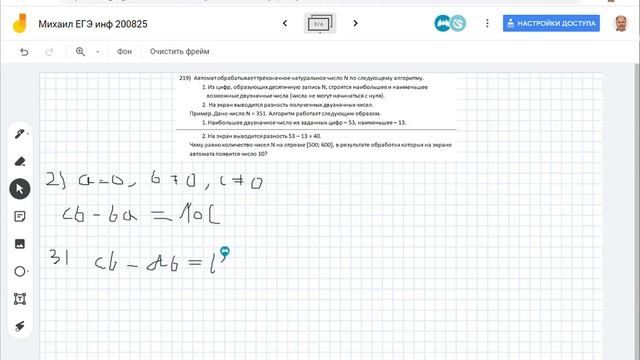 Михаил ЕГЭ инф 200825
3 / 6
НАСТРОЙКИ ДОСТУПА
Фон
Очистить фрейм
219) Автомат обрабатывает трёхзначное натуральное число N по следующему алгоритму.
1. Из цифр, образующих десятичную запись N, строятся наибольшее и наименьшее
возможные двузначные числа (числа не могут начинаться с нуля).
2. На экран выводится разность полученных двузначных чисел.
Пример. Дано число N = 351. Алгоритм работает следующим образом.
1. Наибольшее двузначное число из заданных цифр – 53, наименьшее – 13.
2. На экран выводится разность 53 – 13 = 40.
Чему равно количество чисел N на отрезке [500; 600], в результате обработки которых на экране
автомата появится число 10?
2) a=0, b≠0, c≠0
cb - ba =
3) cb - ab =